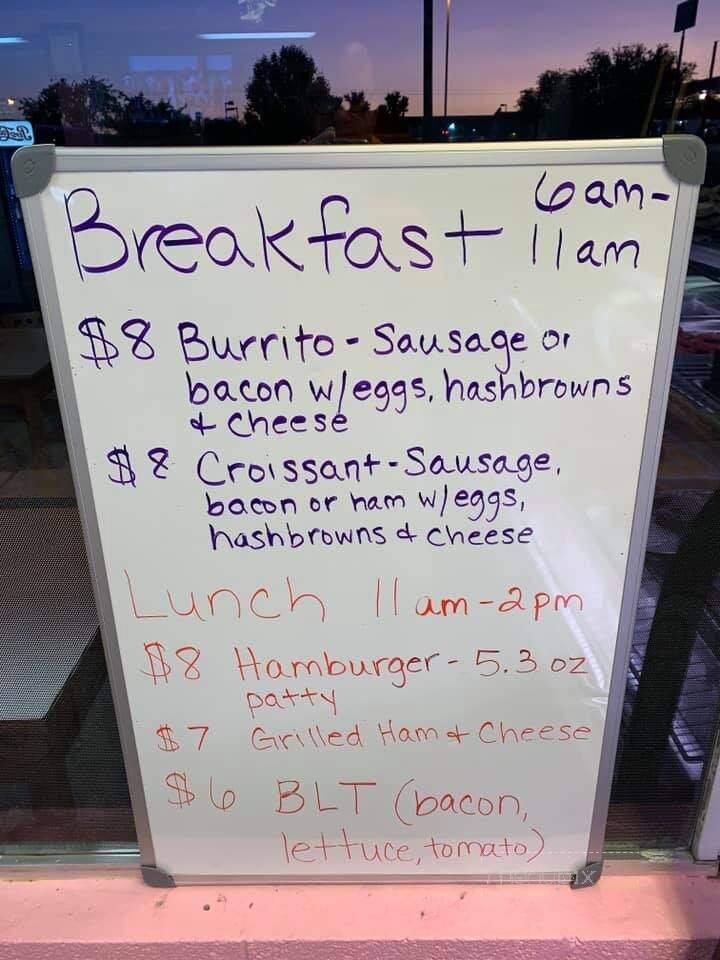 Breakfast 6am-
11am
$8 Burrito - Sausage or
bacon w/eggs, hashbrowns
& cheese
$8 Croissant - Sausage,
bacon or ham w/eggs,
hashbrowns & cheese
Lunch 11am-2pm
$8 Hamburger - 5.3 oz
patty
$7 Grilled Ham & Cheese
$6 BLT (bacon,
lettuce, tomato)